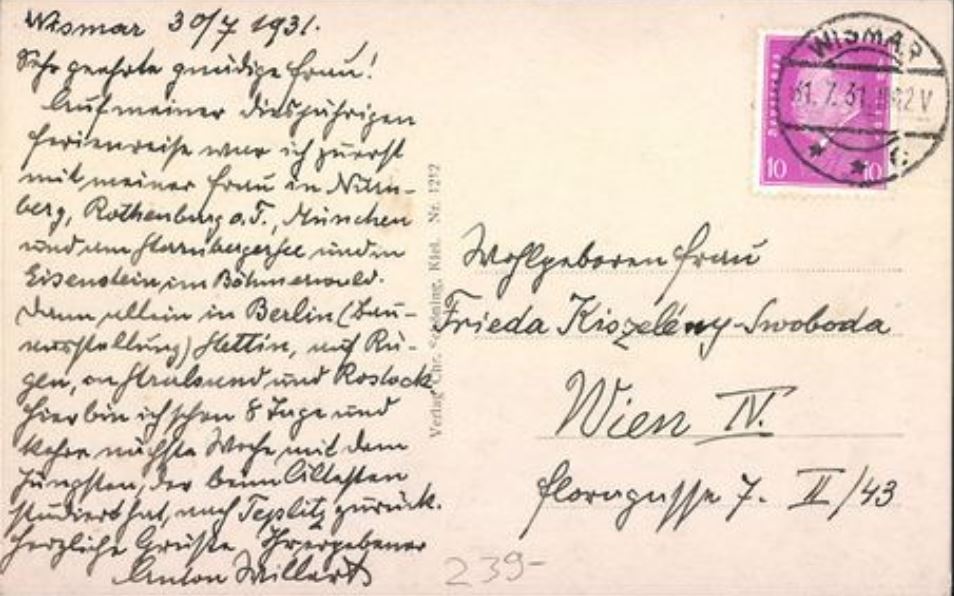 Wismar 30/7 1931.
Sehr geehrte gnädige Frau!
Auf meiner diesjährigen
Ferienreise war ich zuerst
mit meiner Frau in Nürn-
berg, Rothenburg o.T., München
und am Starnbergersee und in
Eisenstein im Böhmerwald.
Dann allein in Berlin (Bau-
ausstellung) Stettin, auf Rü-
gen, in Stralsund und Rostock
Hier bin ich schon 8 Tage und
kehre nächste Woche mit dem
Jüngsten, der beim Ältesten
studiert hat, nach Teplitz zurück.
Herzliche Grüße Ihr ergebener
Anton Willert
Verlag Chr. Schöning, Kiel. Nr. 1212
WISMAR
31.7.31. 12 V
10 10
Wohlgeboren Frau
Frieda Kiszelény-Swoboda
Wien IV.
Floragasse 7. II/43
239-